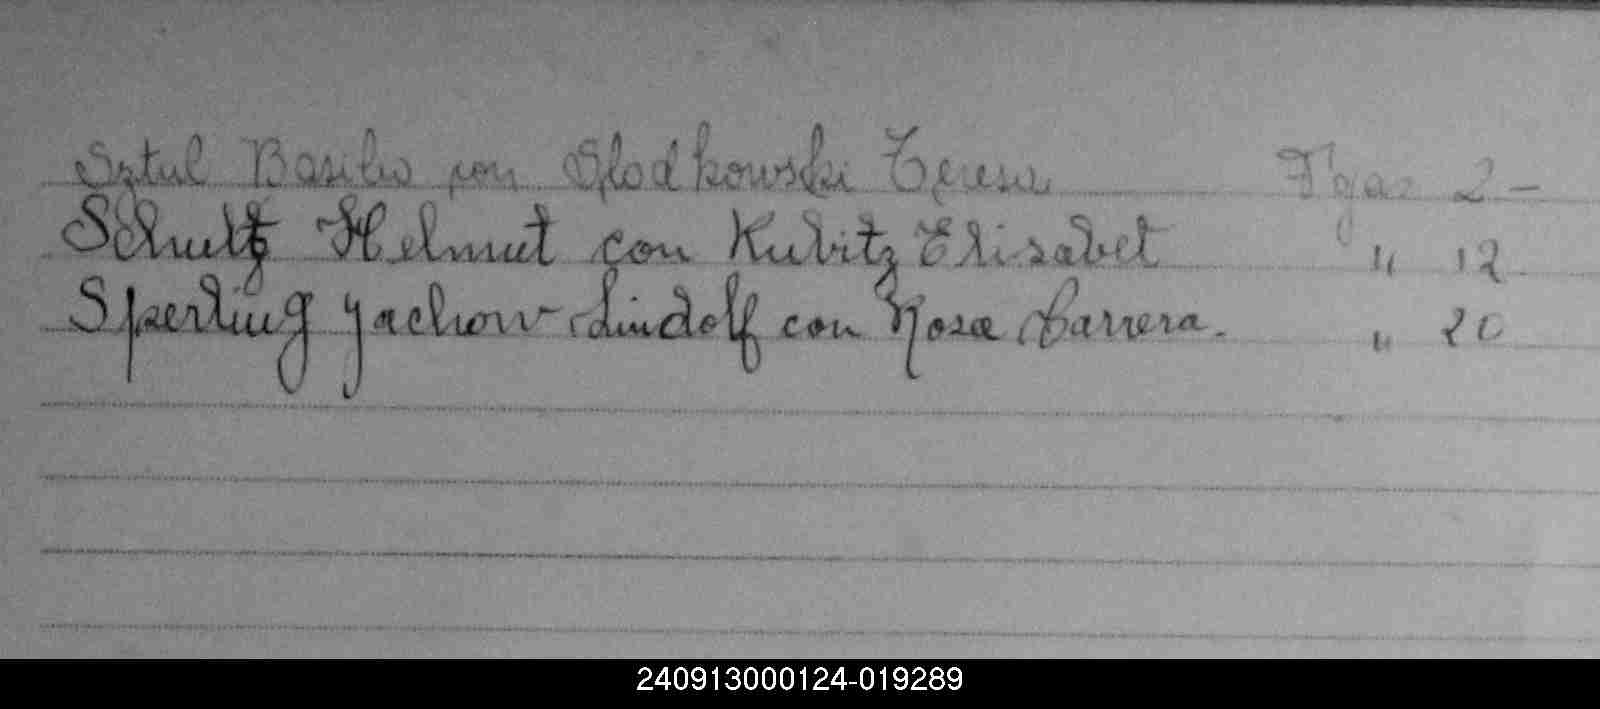 Sztul Basilio con Slodkowski Teresa Fojas 2-
Schultz Helmut con Kubitz Elisabet " 12
Sperling Jachow Lindolf con Rosa Carrera. " 20
240913000124-019289